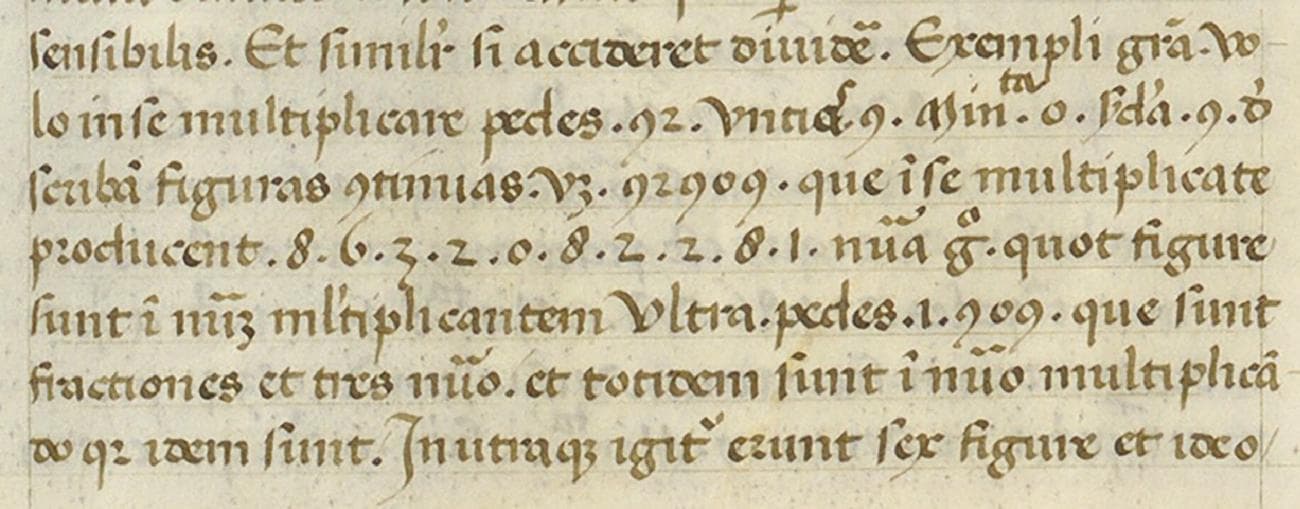 sensibilis. Et similr̃ si accideret diuidẽ. Exempli grã. vo-
lo in se multiplicare pedes .92. .9. Minᵗᵃ. 0. s̃d'a .9. d'
scribã figuras ꝯtinuas. vꝫ. 92909. que ĩ se multiplicate
producent .8.6.3.2.0.8.2.2.8.1. nũa gͦ. quot figure
sunt ĩ nũꝫ ml'tiplicantem Vltra. pedes .i. 909. que sunt
fractiones et tres nũo. et totidem sunt ĩ nũo multiplicã-
do qꝛ idem sunt. In utraqꝫ igit᷑ erunt sex figure et ideo